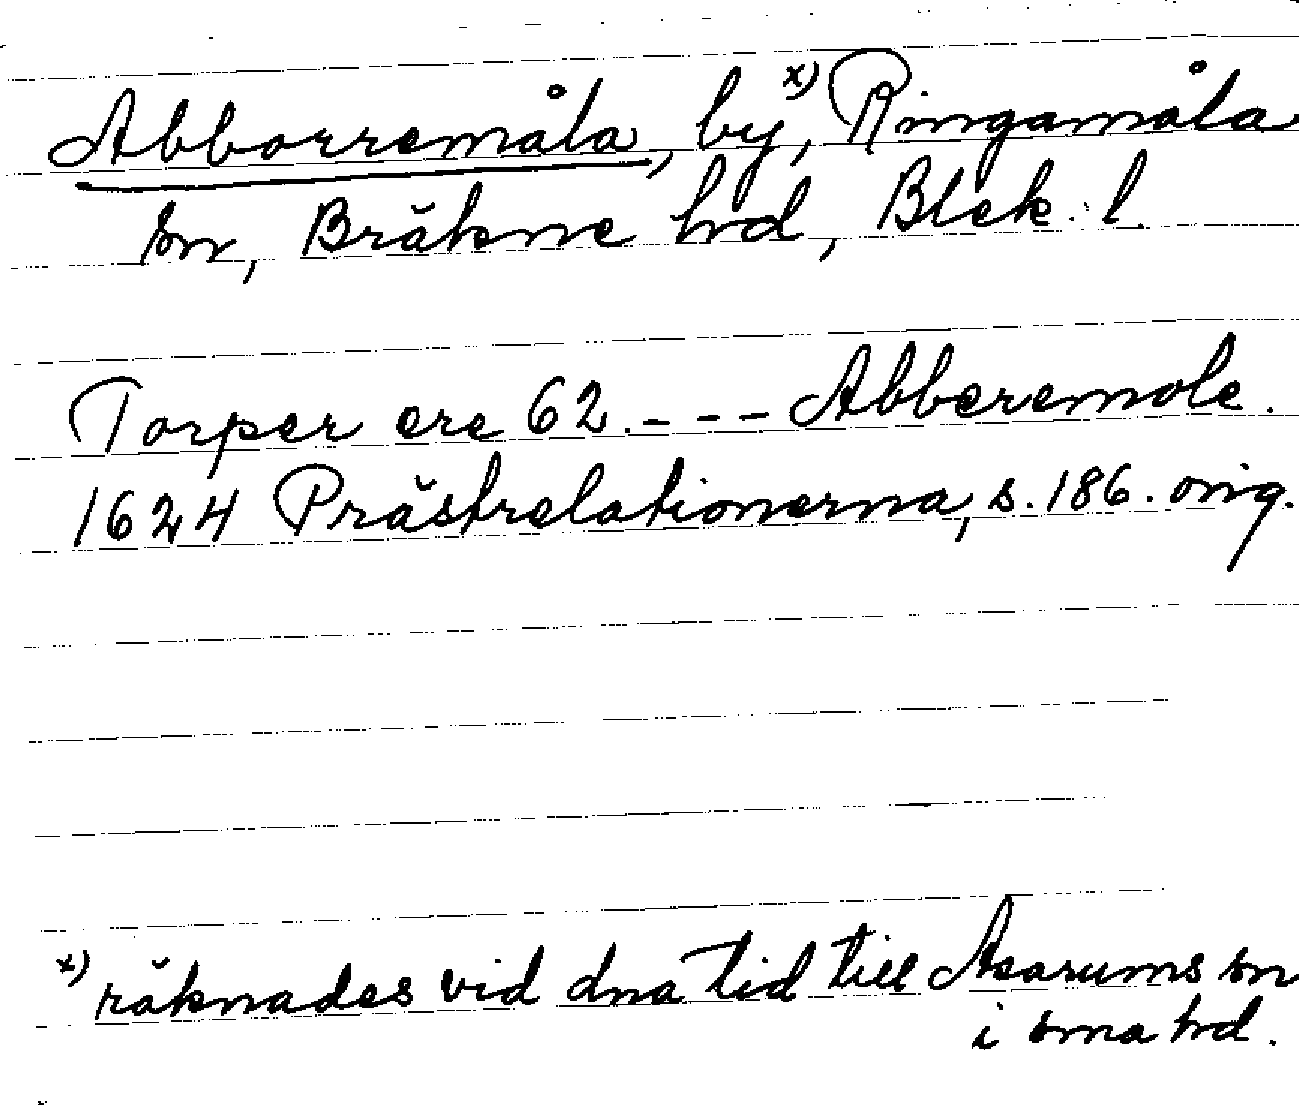 Abborremåla, by, x) Ringamåla
sn, Bräkne hd, Blek. l.
Torper ere 62. - - - Abberemole.
1624 Prästrelationerna, s. 186. orig.
x) räknades vid dna tid till Asarums sn
i sma hd.